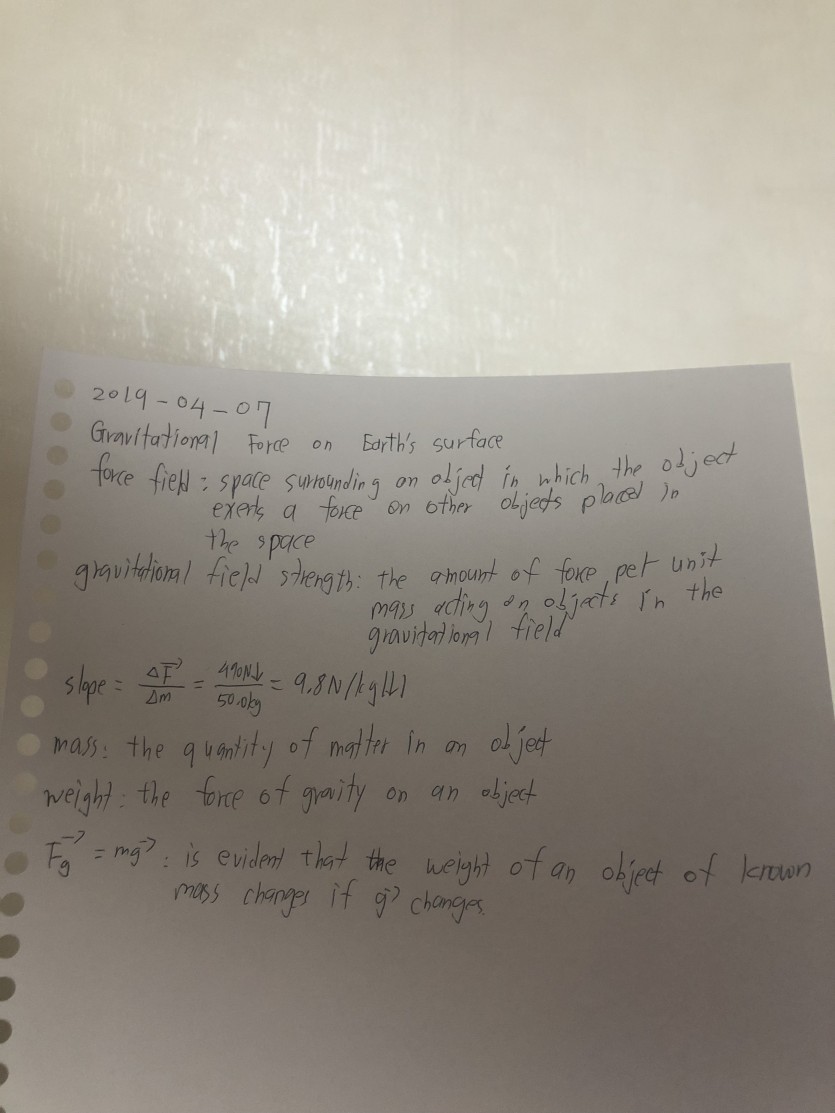 2019-04-07
Gravitational Force on Earth's surface
force field: space surrounding an object in which the object
exerts a force on other objects placed in
the space
gravitational field strength: the amount of force per unit
mass acting on objects in the
gravitational field
slope = ΔF⃗/Δm = 490N↓/50.0kg = 9.8N/kg[↓]
mass: the quantity of matter in an object
weight: the force of gravity on an object
F⃗g = mg⃗: is evident that the weight of an object of known
mass changes if g⃗ changes.